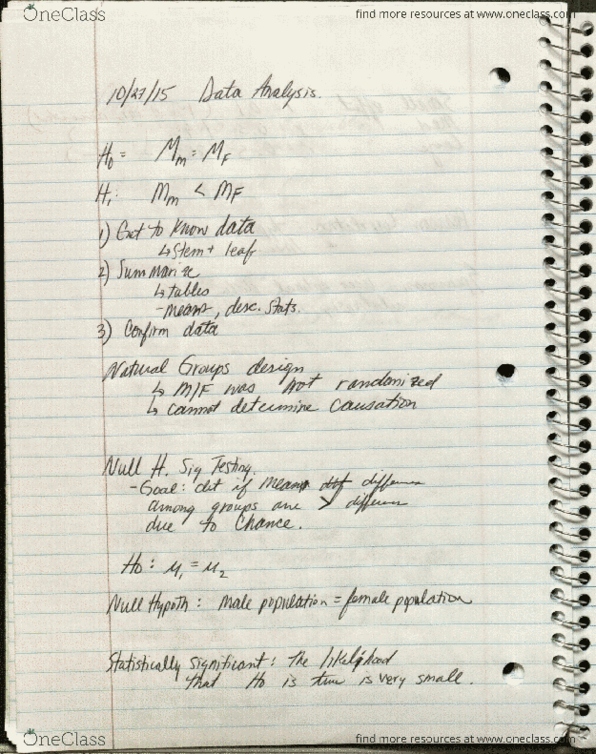 OneClass
find more resources at www.oneclass.com
10/27/15 Data Analysis.
H₀ = Mm = MF
H₁: Mm < MF
1) Get to know data
↳ Stem + leaf
2) Summarize
↳ tables
- means, desc. stats.
3) Confirm data
Natural Groups design
↳ M/F was not randomized
↳ cannot determine causation
Null H. Sig Testing.
- Goal: det if means difference
among groups are > differen
due to chance.
H₀: μ₁ = μ₂
Null Hypoth: Male population = female population
Statistically significant: the likelihood
that H₀ is true is very small.
OneClass
find more resources at www.oneclass.com